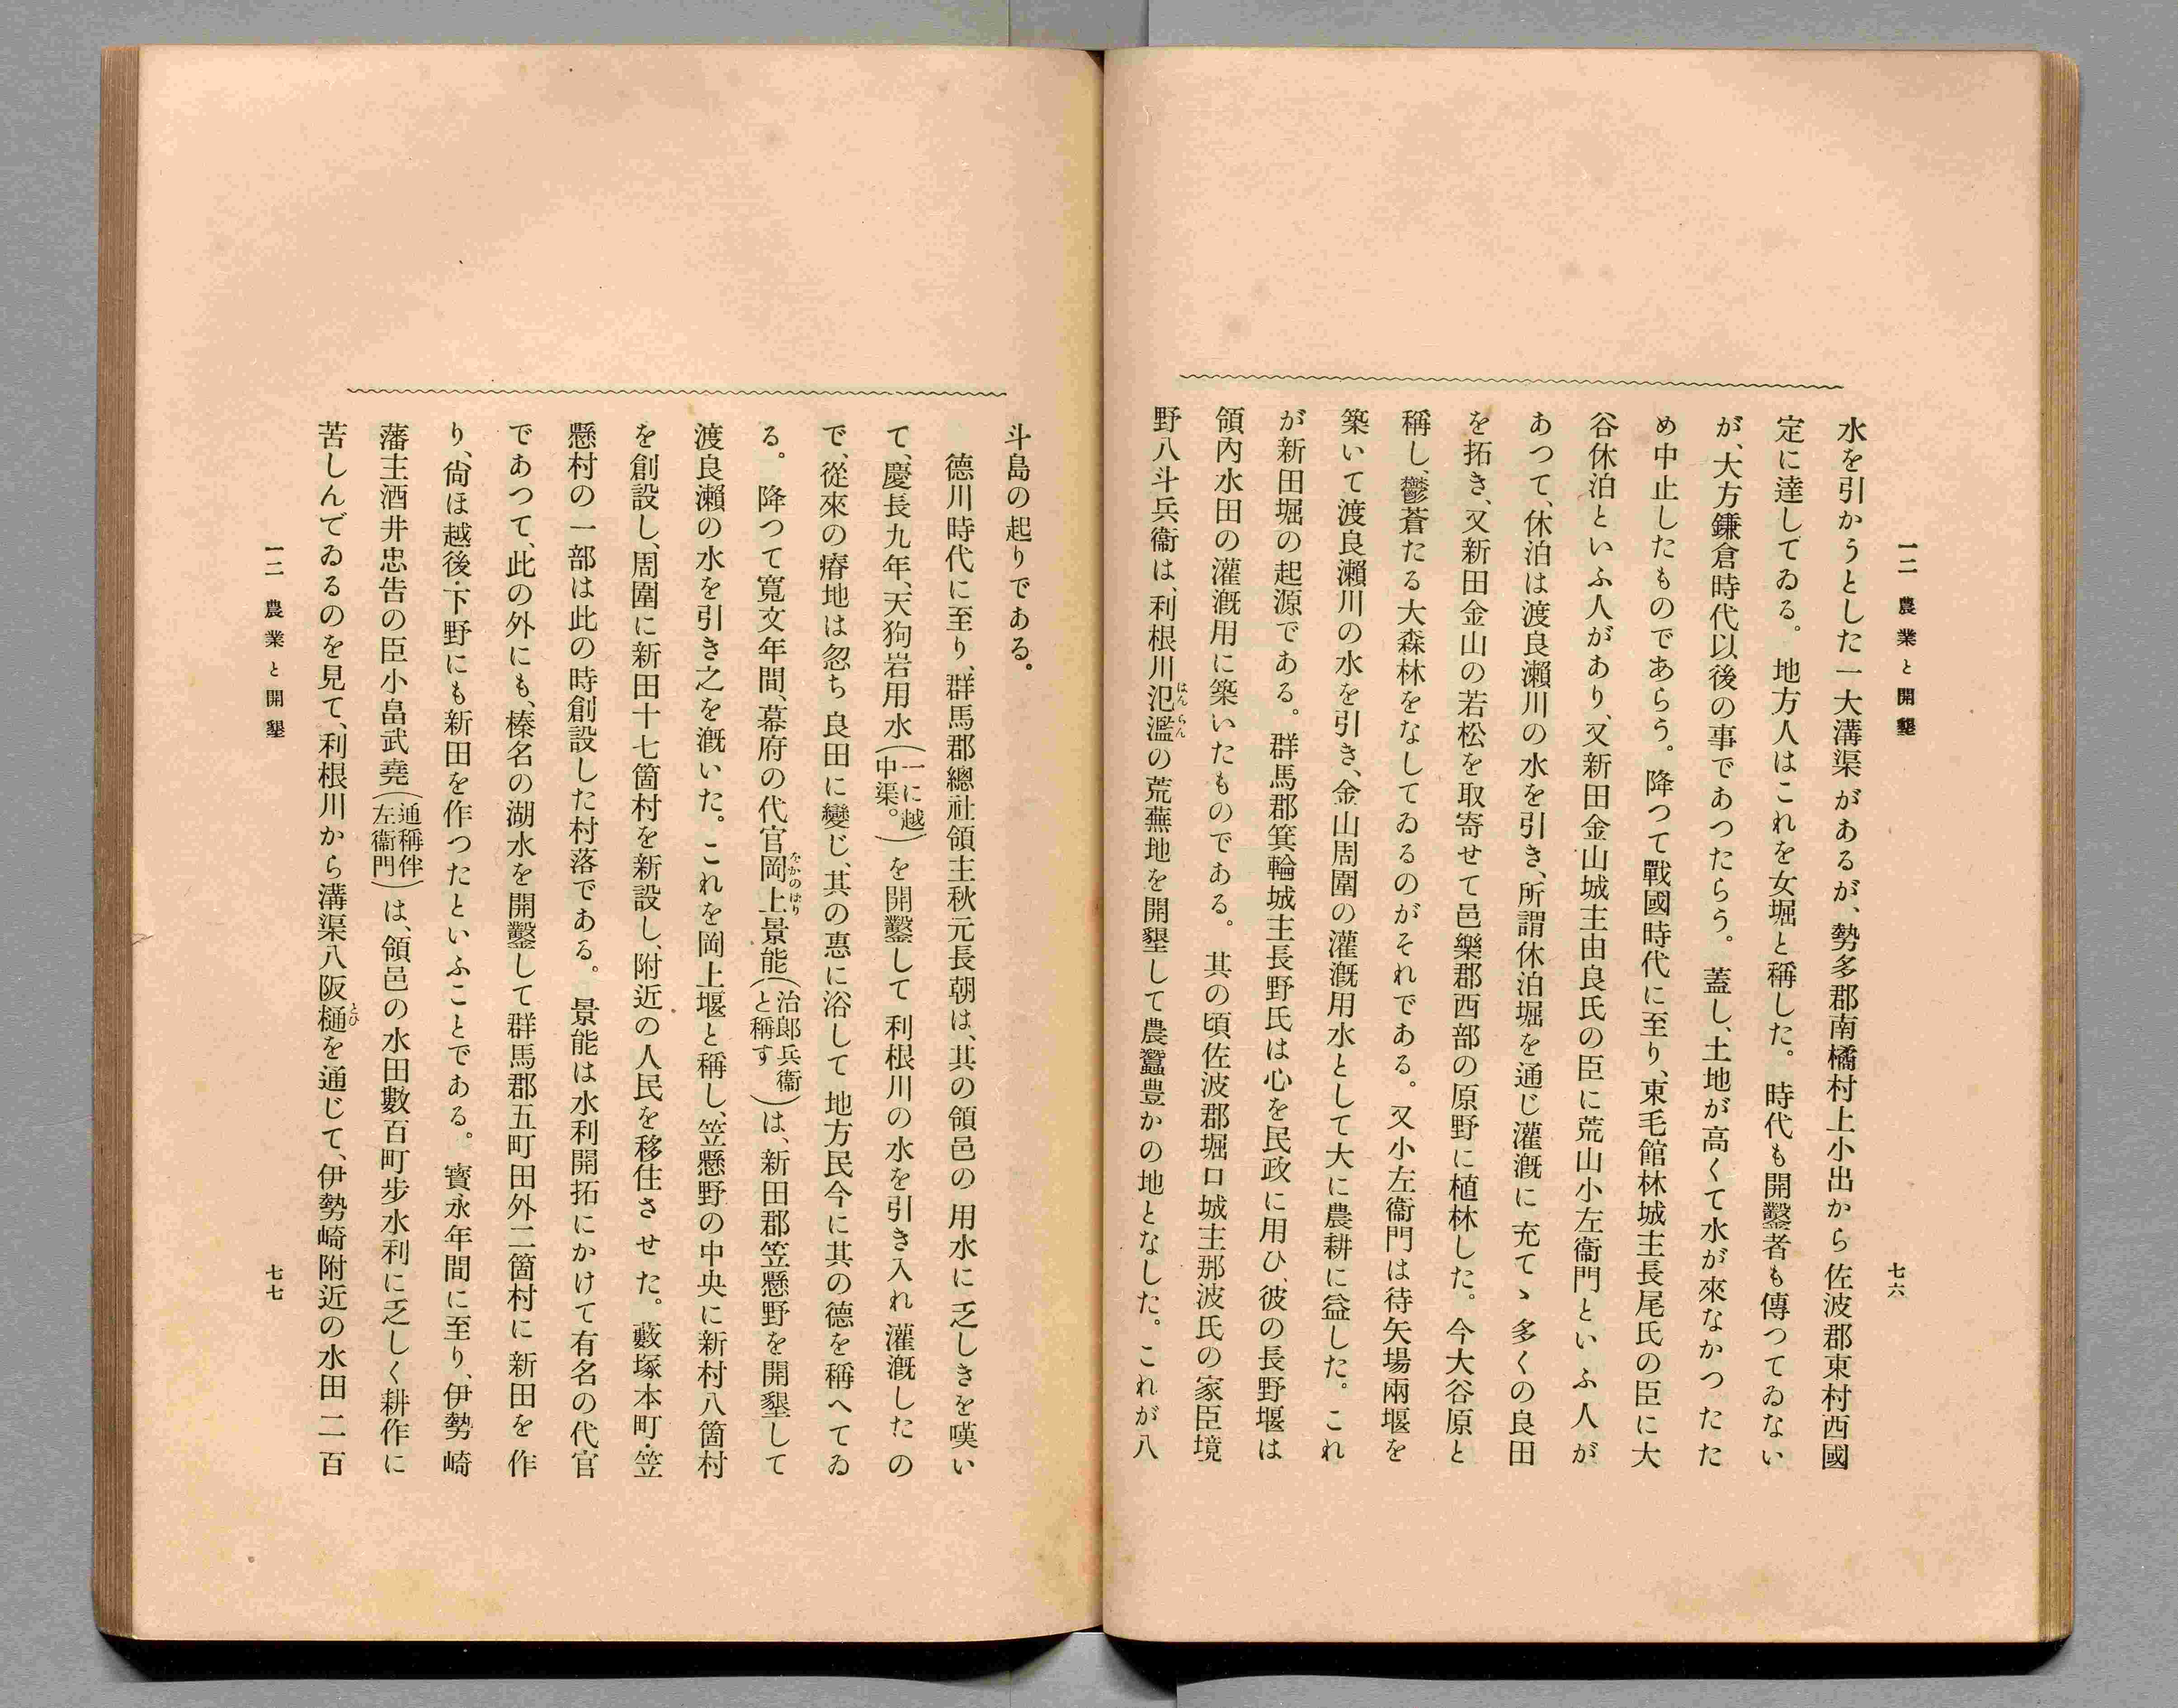 一二 農業と開墾
七六
水を引かうとした一大溝渠があるが、勢多郡南橘村上小出から佐波郡東村西國
定に達してゐる。地方人はこれを女堀と稱した。時代も開鑿者も傳つてゐない
が、大方鎌倉時代以後の事であつたらう。蓋し、土地が高くて水が來なかつたた
め中止したものであらう。降つて戰國時代に至り、東毛館林城主長尾氏の臣に大
谷休泊といふ人があり、又新田金山城主由良氏の臣に荒山小左衞門といふ人が
あつて、休泊は渡良瀨川の水を引き、所謂休泊堀を通じ灌漑に充てゝ多くの良田
を拓き、又新田金山の若松を取寄せて邑樂郡西部の原野に植林した。今大谷原と
稱し、鬱蒼たる大森林をなしてゐるのがそれである。又小左衞門は待矢場兩堰を
築いて渡良瀨川の水を引き、金山周圍の灌漑用水として大に農耕に益した。これ
が新田堀の起源である。群馬郡箕輪城主長野氏は心を民政に用ひ、彼の長野堰は
領內水田の灌漑用に築いたものである。其の頃佐波郡堀口城主那波氏の家臣境
野八斗兵衞は、利根川氾濫はんらんの荒蕪地を開墾して農蠶豊かの地となした。これが八
斗島の起りである。
德川時代に至り、群馬郡總社領主秋元長朝は、其の領邑の用水に乏しきを嘆い
て、慶長九年、天狗岩用水(一に越中渠。)を開鑿して利根川の水を引き入れ灌漑したの
で、從來の瘠地は忽ち良田に變じ、其の惠に浴して地方民今に其の德を稱へてゐ
る。降つて寬文年間、幕府の代官岡上をかのぼり景能(治郎兵衞と稱す)は、新田郡笠懸野を開墾して
渡良瀨の水を引き之を漑いた。これを岡上堰と稱し、笠懸野の中央に新村八箇村
を創設し、周圍に新田十七箇村を新設し、附近の人民を移住させた。藪塚本町・笠
懸村の一部は此の時創設した村落である。景能は水利開拓にかけて有名の代官
であつて、此の外にも、榛名の湖水を開鑿して群馬郡五町田外二箇村に新田を作
り、尙ほ越後・下野にも新田を作つたといふことである。寳永年間に至り、伊勢崎
藩主酒井忠告の臣小畠武堯(通稱伴左衞門)は、領邑の水田數百町步水利に乏しく耕作に
苦しんでゐるのを見て、利根川から溝渠八阪樋とひを通じて、伊勢崎附近の水田二百
一二 農業と開墾
七七